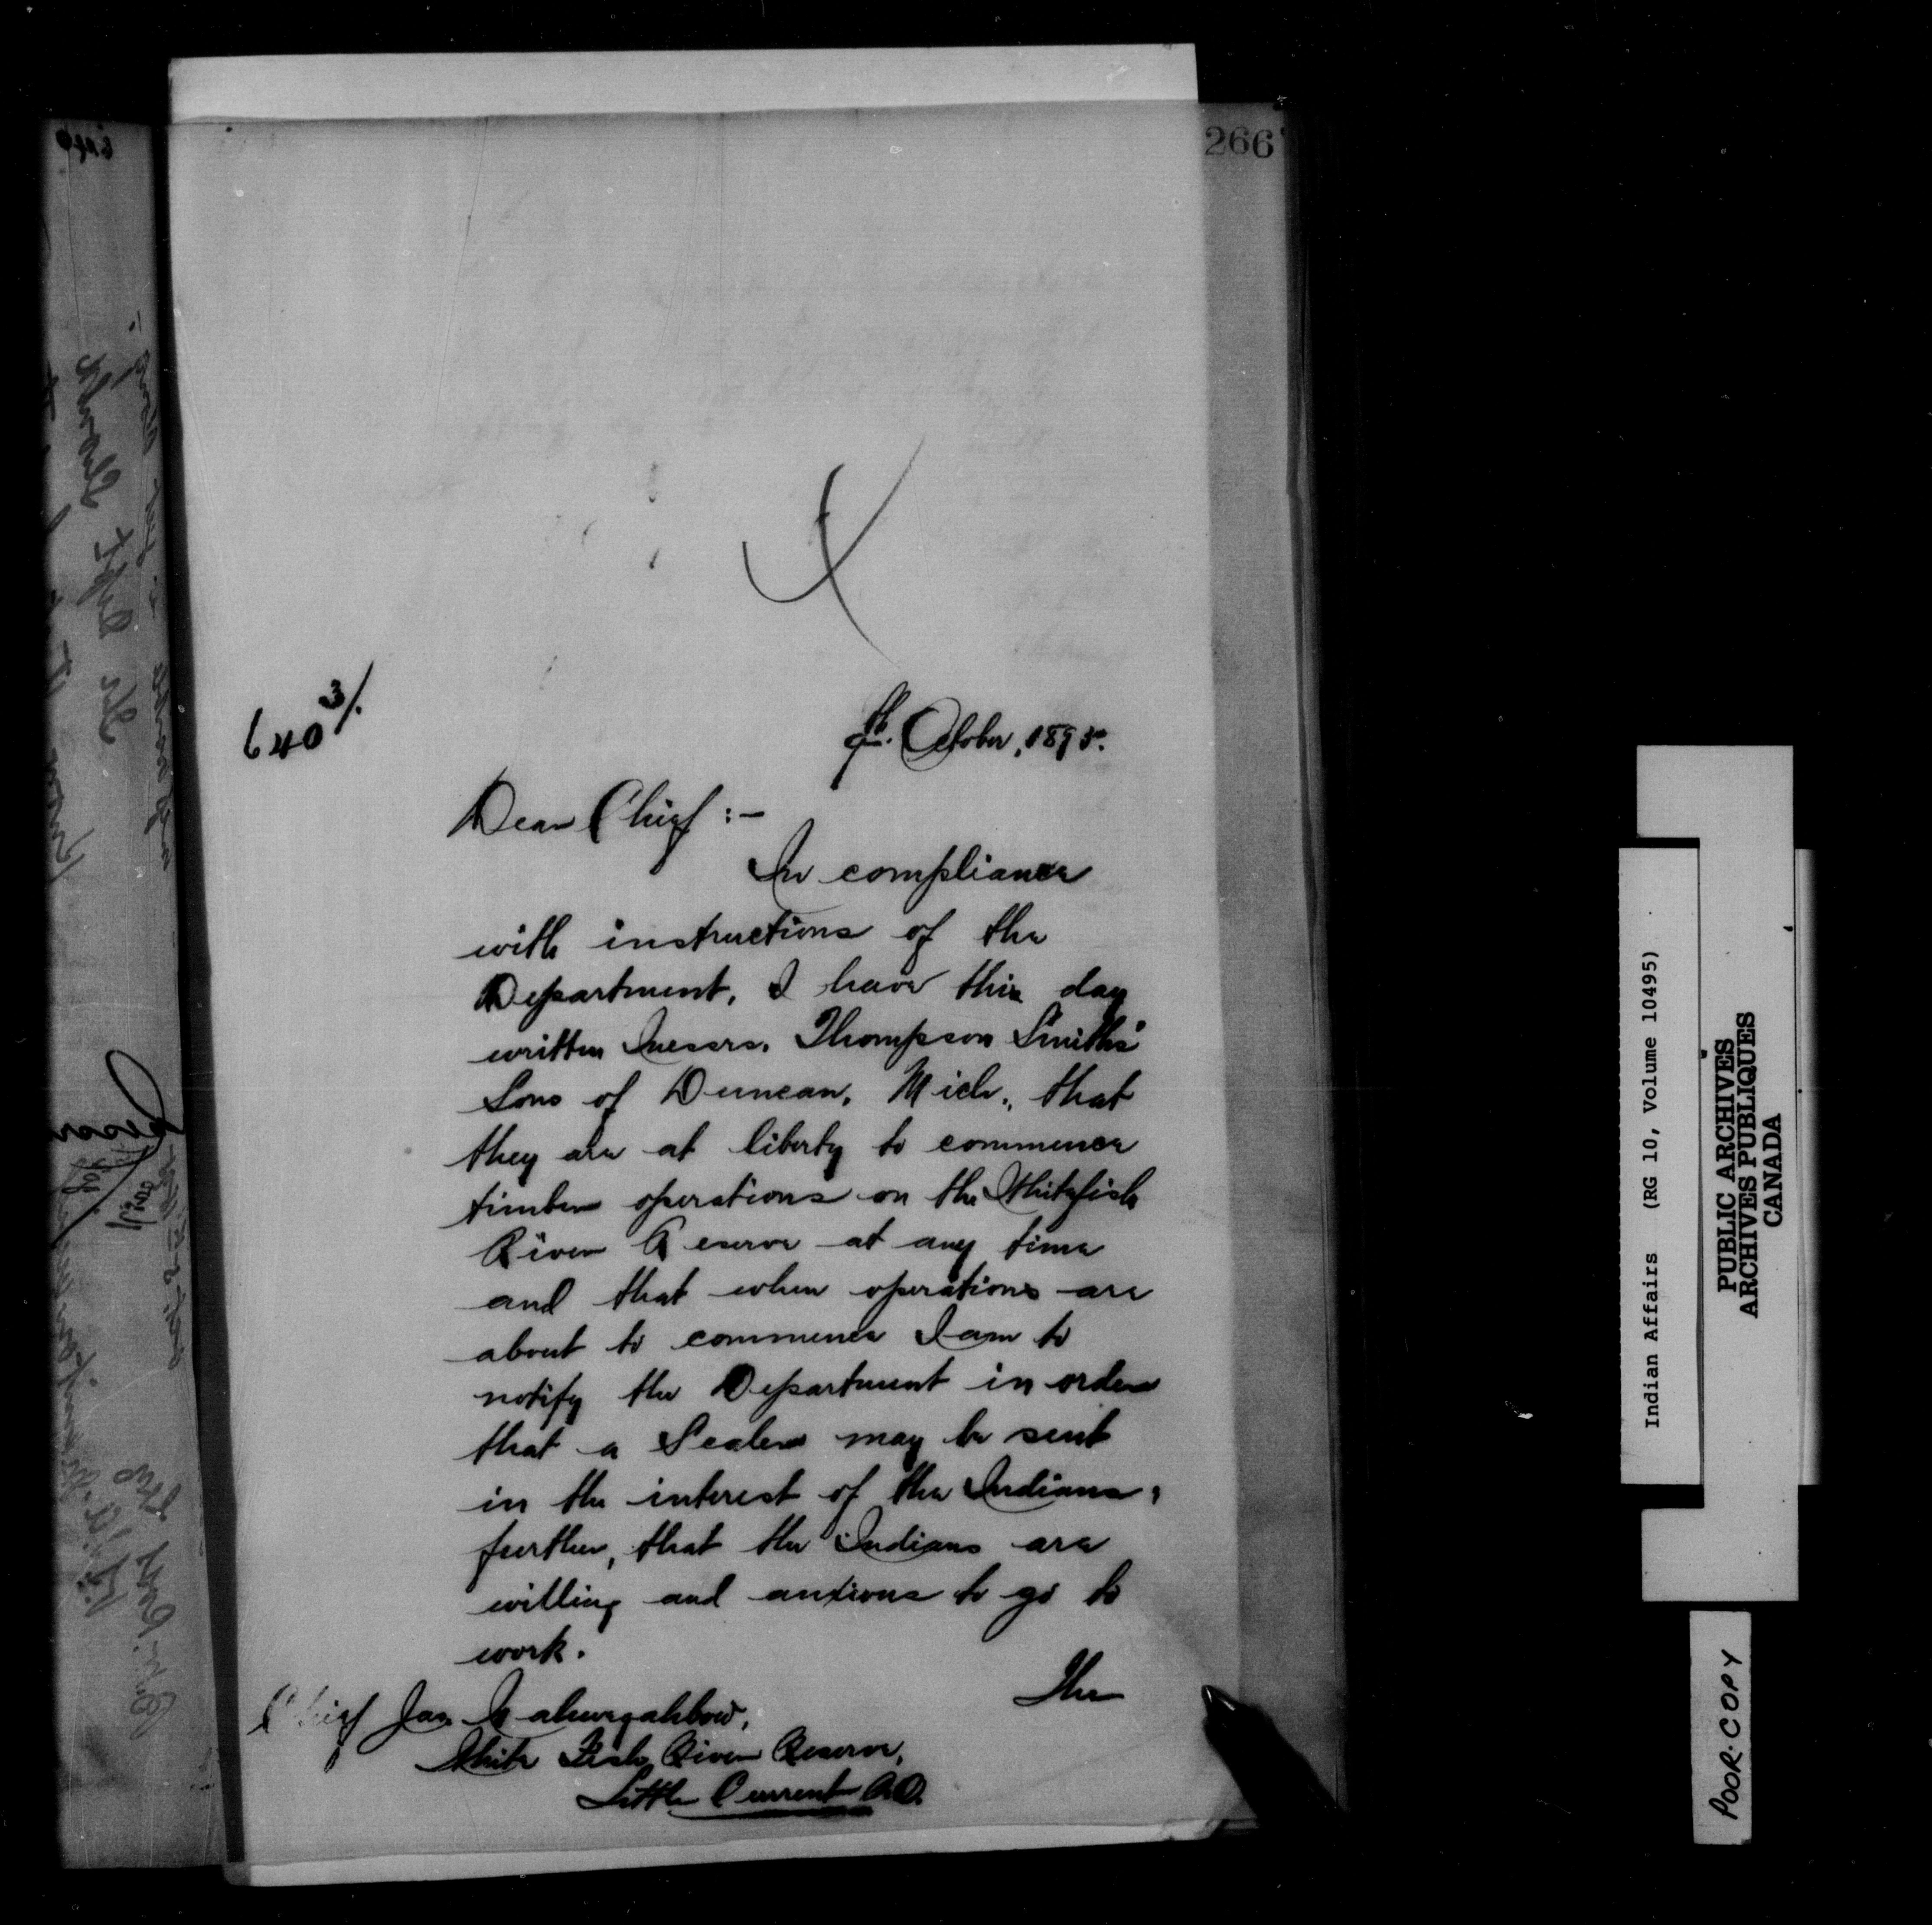 266
640 3/.
9th. October, 1895.
Dear Chief :-
In compliance
with instructions of the
Department, I have this day
written Messrs. Thompson Smith's
Sons of Duncan, Mich., that
they are at liberty to commence
timber operations on the Whitefish
River Reserve at any time
and that when operations are
about to commence I am to
notify the Department in order
that a Scaler may be sent
in the interest of the Indians,
further, that the Indians are
willing and anxious to go to
work.
The
Chief Jas.
White Fish River Reserve,
Little Current P.O.
Indian Affairs (RG 10, Volume 10495)
PUBLIC ARCHIVES
ARCHIVES PUBLIQUES
CANADA
POOR COPY